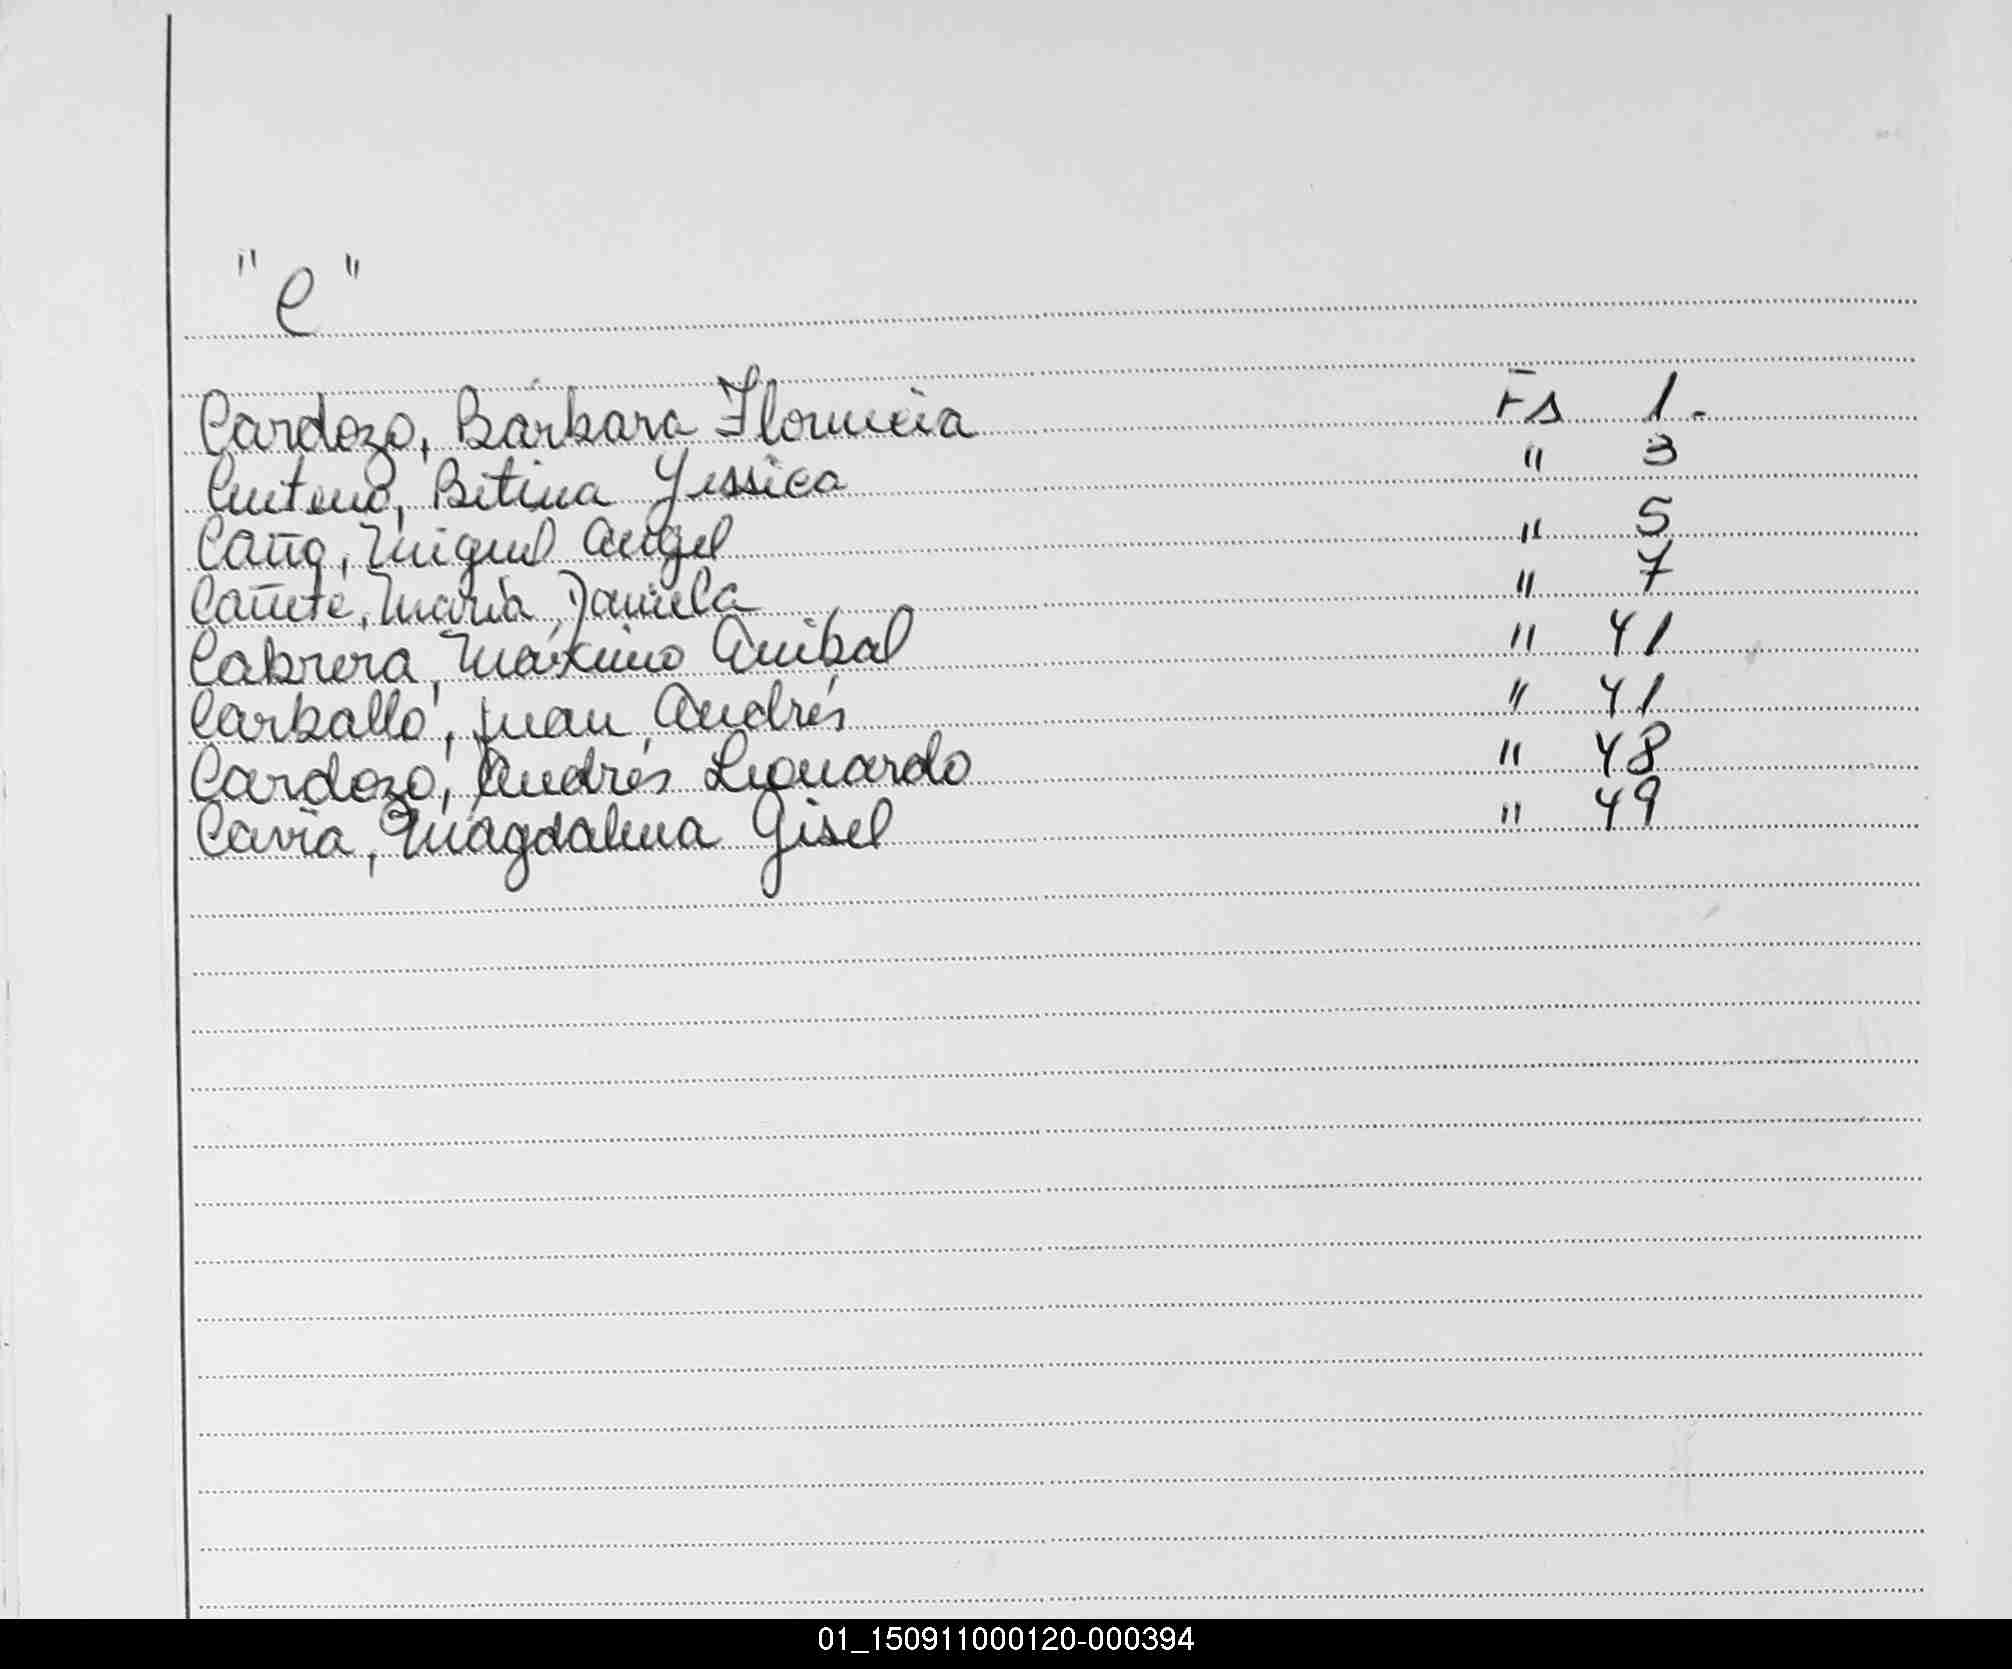 "C"
Cardozo, Bárbara Florencia Fs 1.
Centeno, Betina Yessica " 3
Caño, Miguel Angel " 5
Cañete, María Daniela " 7
Cabrera, Máximo Anibal " 41
Carballo, Juan Andrés " 41
Cardozo, Andrés Leonardo " 48
Cavia, Magdalena Gisel " 49
01_150911000120-000394